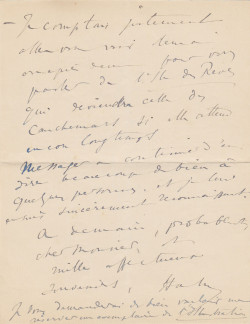 — Je comptais justement
aller vous voir demain
pour vous
parler de l'Ile des Rêves
qui deviendra celle des
Cauchemars si elle attend
encore longtemps
Messager a continué d'en
dire beaucoup de bien à
quelques personnes et je leur
suis sincèrement reconnaissant.
A demain, probablement,
cher Monsieur, et
mille affectueux
souvenirs,
Je vous demanderai de bien vouloir me
réserver un exemplaire de